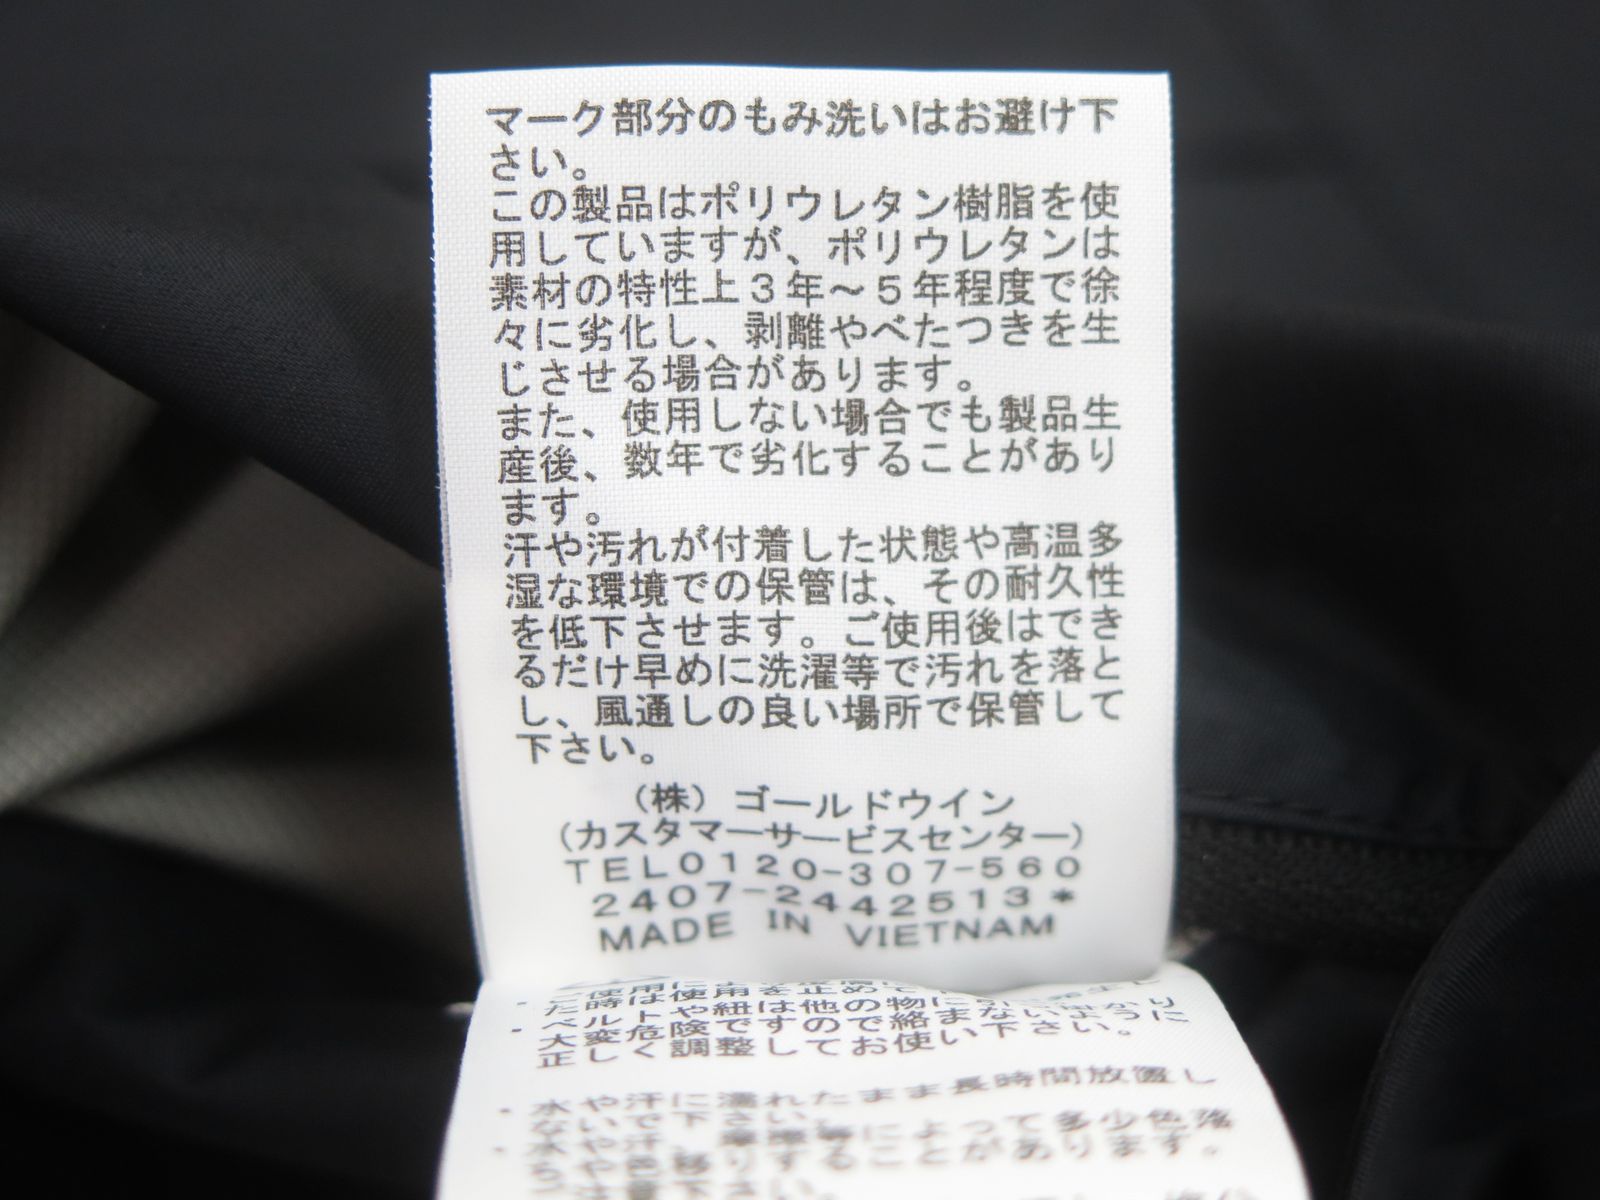 マーク部分のもみ洗いはお避け下
さい。
この製品はポリウレタン樹脂を使
用していますが、ポリウレタンは
素材の特性上３年～５年程度で徐
々に劣化し、剥離やべたつきを生
じさせる場合があります。
また、使用しない場合でも製品生
産後、数年で劣化することがあり
ます。
汗や汚れが付着した状態や高温多
湿な環境での保管は、その耐久性
を低下させます。ご使用後はでき
るだけ早めに洗濯等で汚れを落と
し、風通しの良い場所で保管して
下さい。
（株）ゴールドウイン
（カスタマーサービスセンター）
ＴＥＬ０１２０-３０７-５６０
２４０７-２４４２５１３＊
MADE IN VIETNAM
た時は使用を止めて
・ベルトや紐は他の物に
大変危険ですので絡まないように
正しく調整してお使い下さい。
・水や汗に濡れたまま長時間放置し
ないで下さい。
・水や汗、によって多少色落
ちや色移りすることがあります。